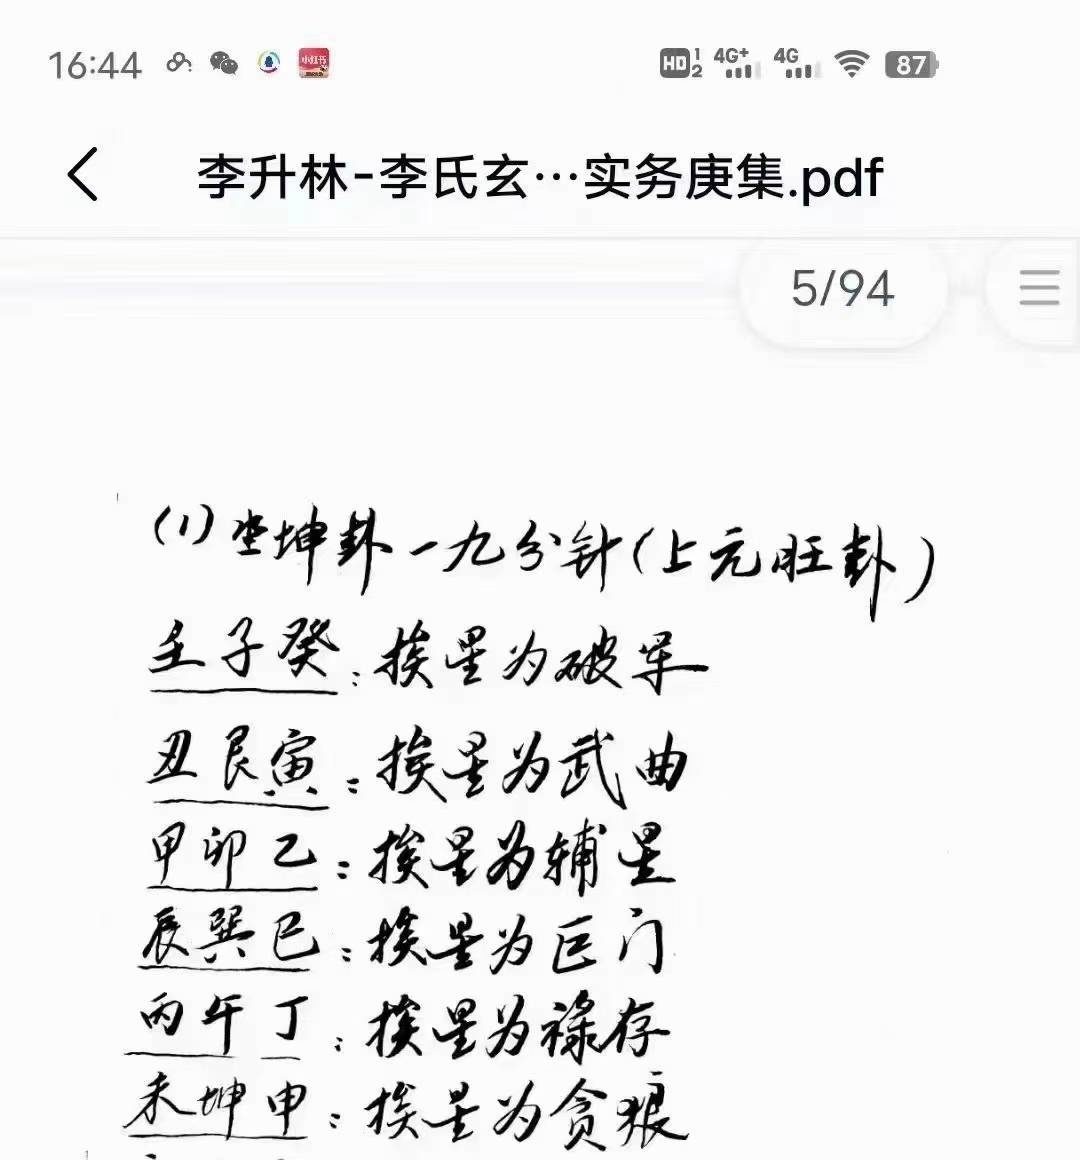 16:44 小红书 HD 1 2 4G+ 4G 87
李升林-李氏玄…实务庚集.pdf
5/94
(1)坐坤卦一九分针(上元旺卦)
壬子癸:挨星为破军
丑艮寅:挨星为武曲
甲卯乙:挨星为辅星
辰巽巳:挨星为巨门
丙午丁:挨星为禄存
未坤申:挨星为贪狼